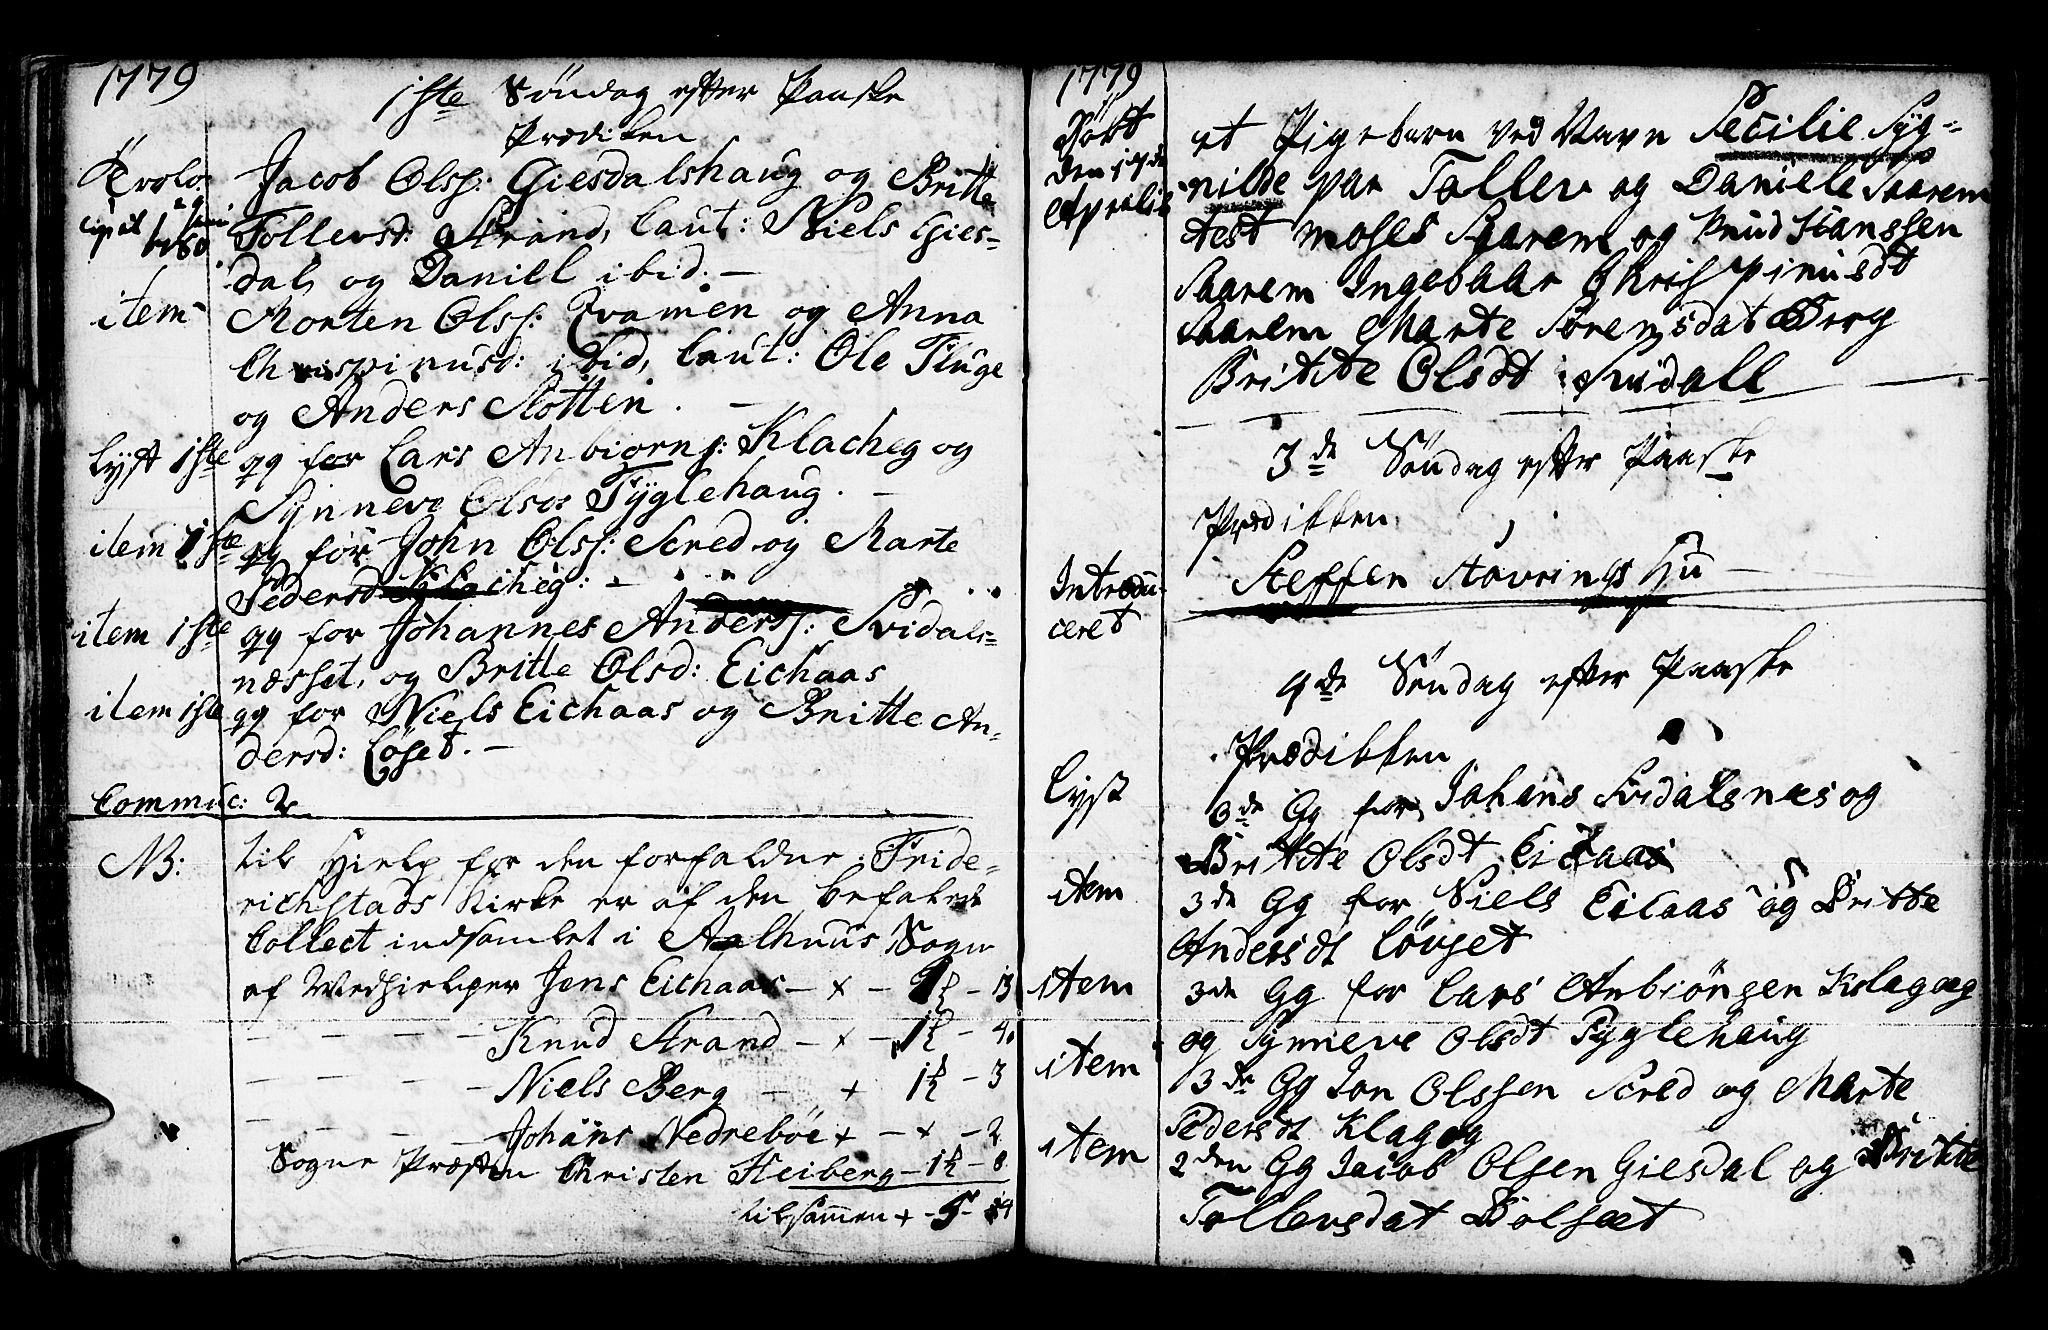 1779
1ste Søndag efter Paaske
Prædiken
Trolo: Jacob Olss: Giesdalshaug og Britte
Tollevsd: Strand, Caut: Niels Gies-
dal, og Daniel ibid. —
item Morten Olss: Qvamen og Anna
Chrispinusd: ibid, Caut: Ole Fluge
og Anders Slotten. —
Lyst 1ste gg for Lars Anbiørns: Klacheg og
Synneve Olsd: Tyglehaug. —
item 1ste gg for John Olss: Scred og Marte
Pedersd Klacheg: —
item 1ste gg for Johannes Anderss: Svidals=
næsset, og Britte Olsd: Eichaas
item 1ste gg for Niels Eichaas og Britte An-
dersd: Løset. —
Commuc: 2
NB: til Hielp for den forfaldne Fride-
richstads Kirke er af den befalede
Collect indsamlet i Aalhuus Sogn
af Medhielper Jens Eichaas — x —
— — — — Knud Strand — x — 1½ — 4.
— — — — Niels Berg — + 1½ — 3
— — — — Johans Nedrebøe + — x — 2
Sogne Præsten Christen Heiberg — 1½ — 8
tilsammen + - 5 -
1779
Døbt et Pigebarn ved Navn Secilie Syg-
den 17de nilde par Tollev og Daniele Saarem
Aprelis test Moses Saarem og Knud Hanssen
Saarem Ingebaar Chrispinusdt
Saarem Marte Sørensdat Berg
Britte Olsdt Svidall
3de Søndag efter Paaske
Prædikken
Introdu- Steffen Stavrings Hu —
ceret
4de Søndag efter Paaske
Prædikken
Lyst 3de Gg for Johans Svidalsnæs og
Britte Olsdt Eichaas
item 3de Gg for Niels Eicaas og Britte
Andersdt Løvset
item 3de Gg for Lars Anbiønsen Klagæg
og Synneve Olsdt Tyglehaug
item 3de Gg Jon Olssen Scred og Marte
Pedersdt Klagæg
item 2den Gg Jacob Olsen Giesdal og Britte
Tollevsdat Bolsæt